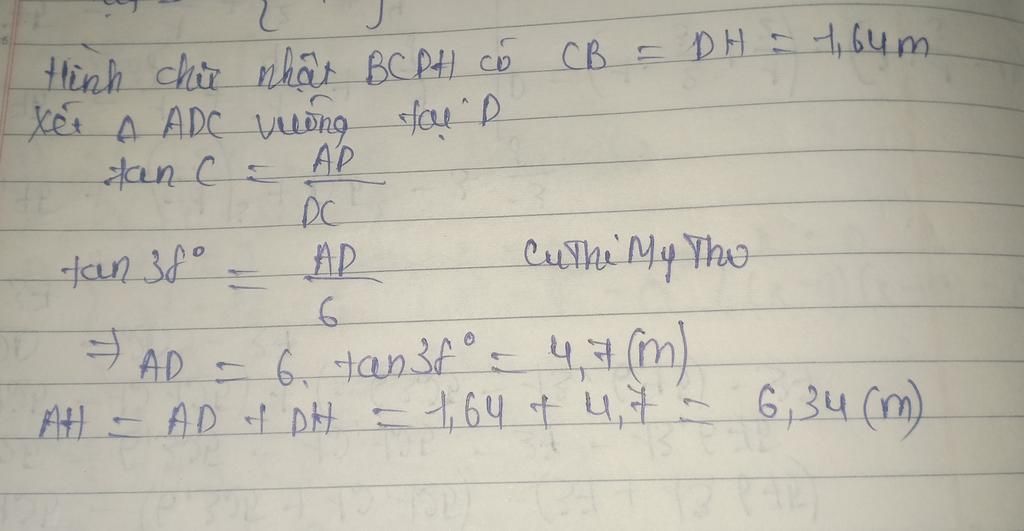 Hình chữ nhật BCDH có CB = DH = 1,64m
Xét Δ ADC vuông tại D
tan C = AD / DC
tan 38° = AD / 6
Cu Thi My Tho
⇒ AD = 6. tan 38° = 4,7 (m)
AH = AD + DH = 1,64 + 4,7 = 6,34 (m)